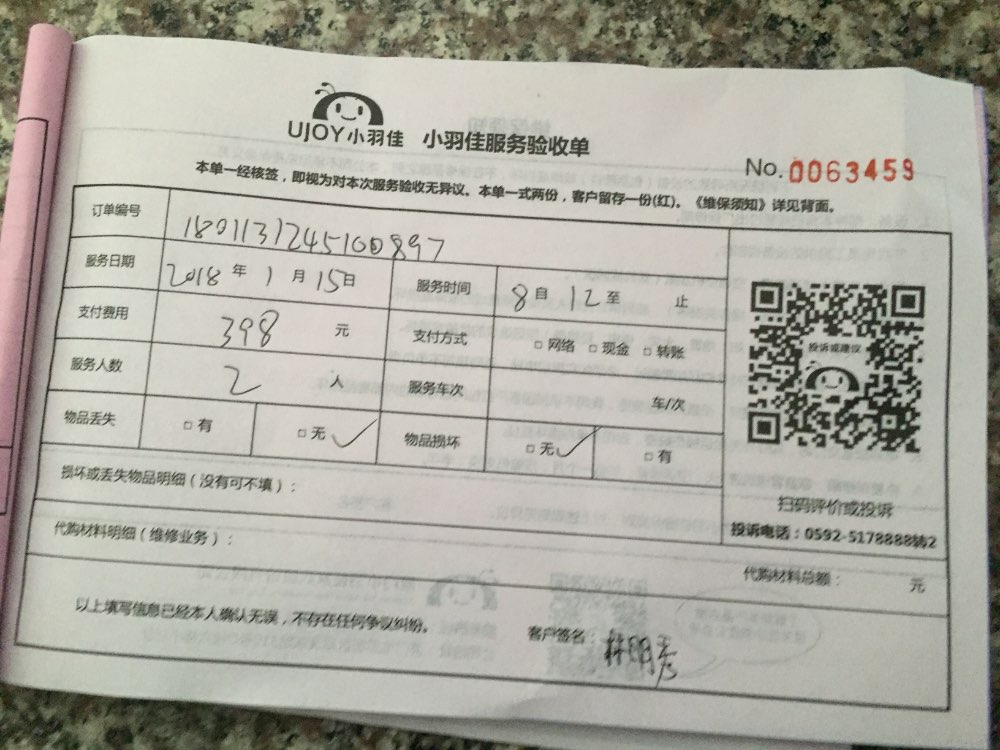 UJOY小羽佳 小羽佳服务验收单
No.0063459
本单一经核签，即视为对本次服务验收无异议。本单一式两份，客户留存一份(红)。《维保须知》详见背面。
订单编号 1801131245100897
服务日期 2018 年 1 月 15 日 服务时间 8 自 12 至 止
支付费用 398 元 支付方式 □ 网络 □ 现金 □ 转账
服务人数 2 人 服务车次 车/次
物品丢失 □ 有 □ 无 ✓ 物品损坏 □ 无 ✓ □ 有
投诉或建议
扫码评价或投诉
投诉电话：0592-5178888转2
损坏或丢失物品明细（没有可不填）：
代购材料明细（维修业务）：
代购材料总额： 元
以上填写信息已经本人确认无误，不存在任何争议纠纷。
客户签名：林明秀